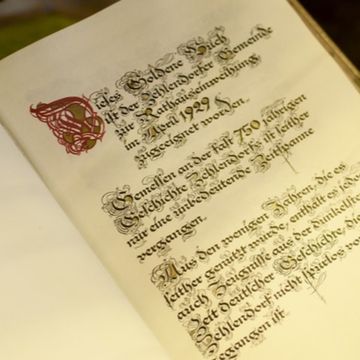 Dieses Goldene Buch
ist der Zehlendorfer Gemeinde
zur Rathauseinweihung
im April 1929
zugeeignet worden.
Gemessen an der fast 750 jährigen
Geschichte Zehlendorfs ist seither
nur eine unbedeutende Zeitspanne
vergangen.
Aus den wenigen Jahren, die es
seither genützt wurde, enthält es jedoch
auch Zeugnisse aus der dunkelsten
Zeit deutscher Geschichte, die
Zehlendorf nicht spurlos
gegangen ist.